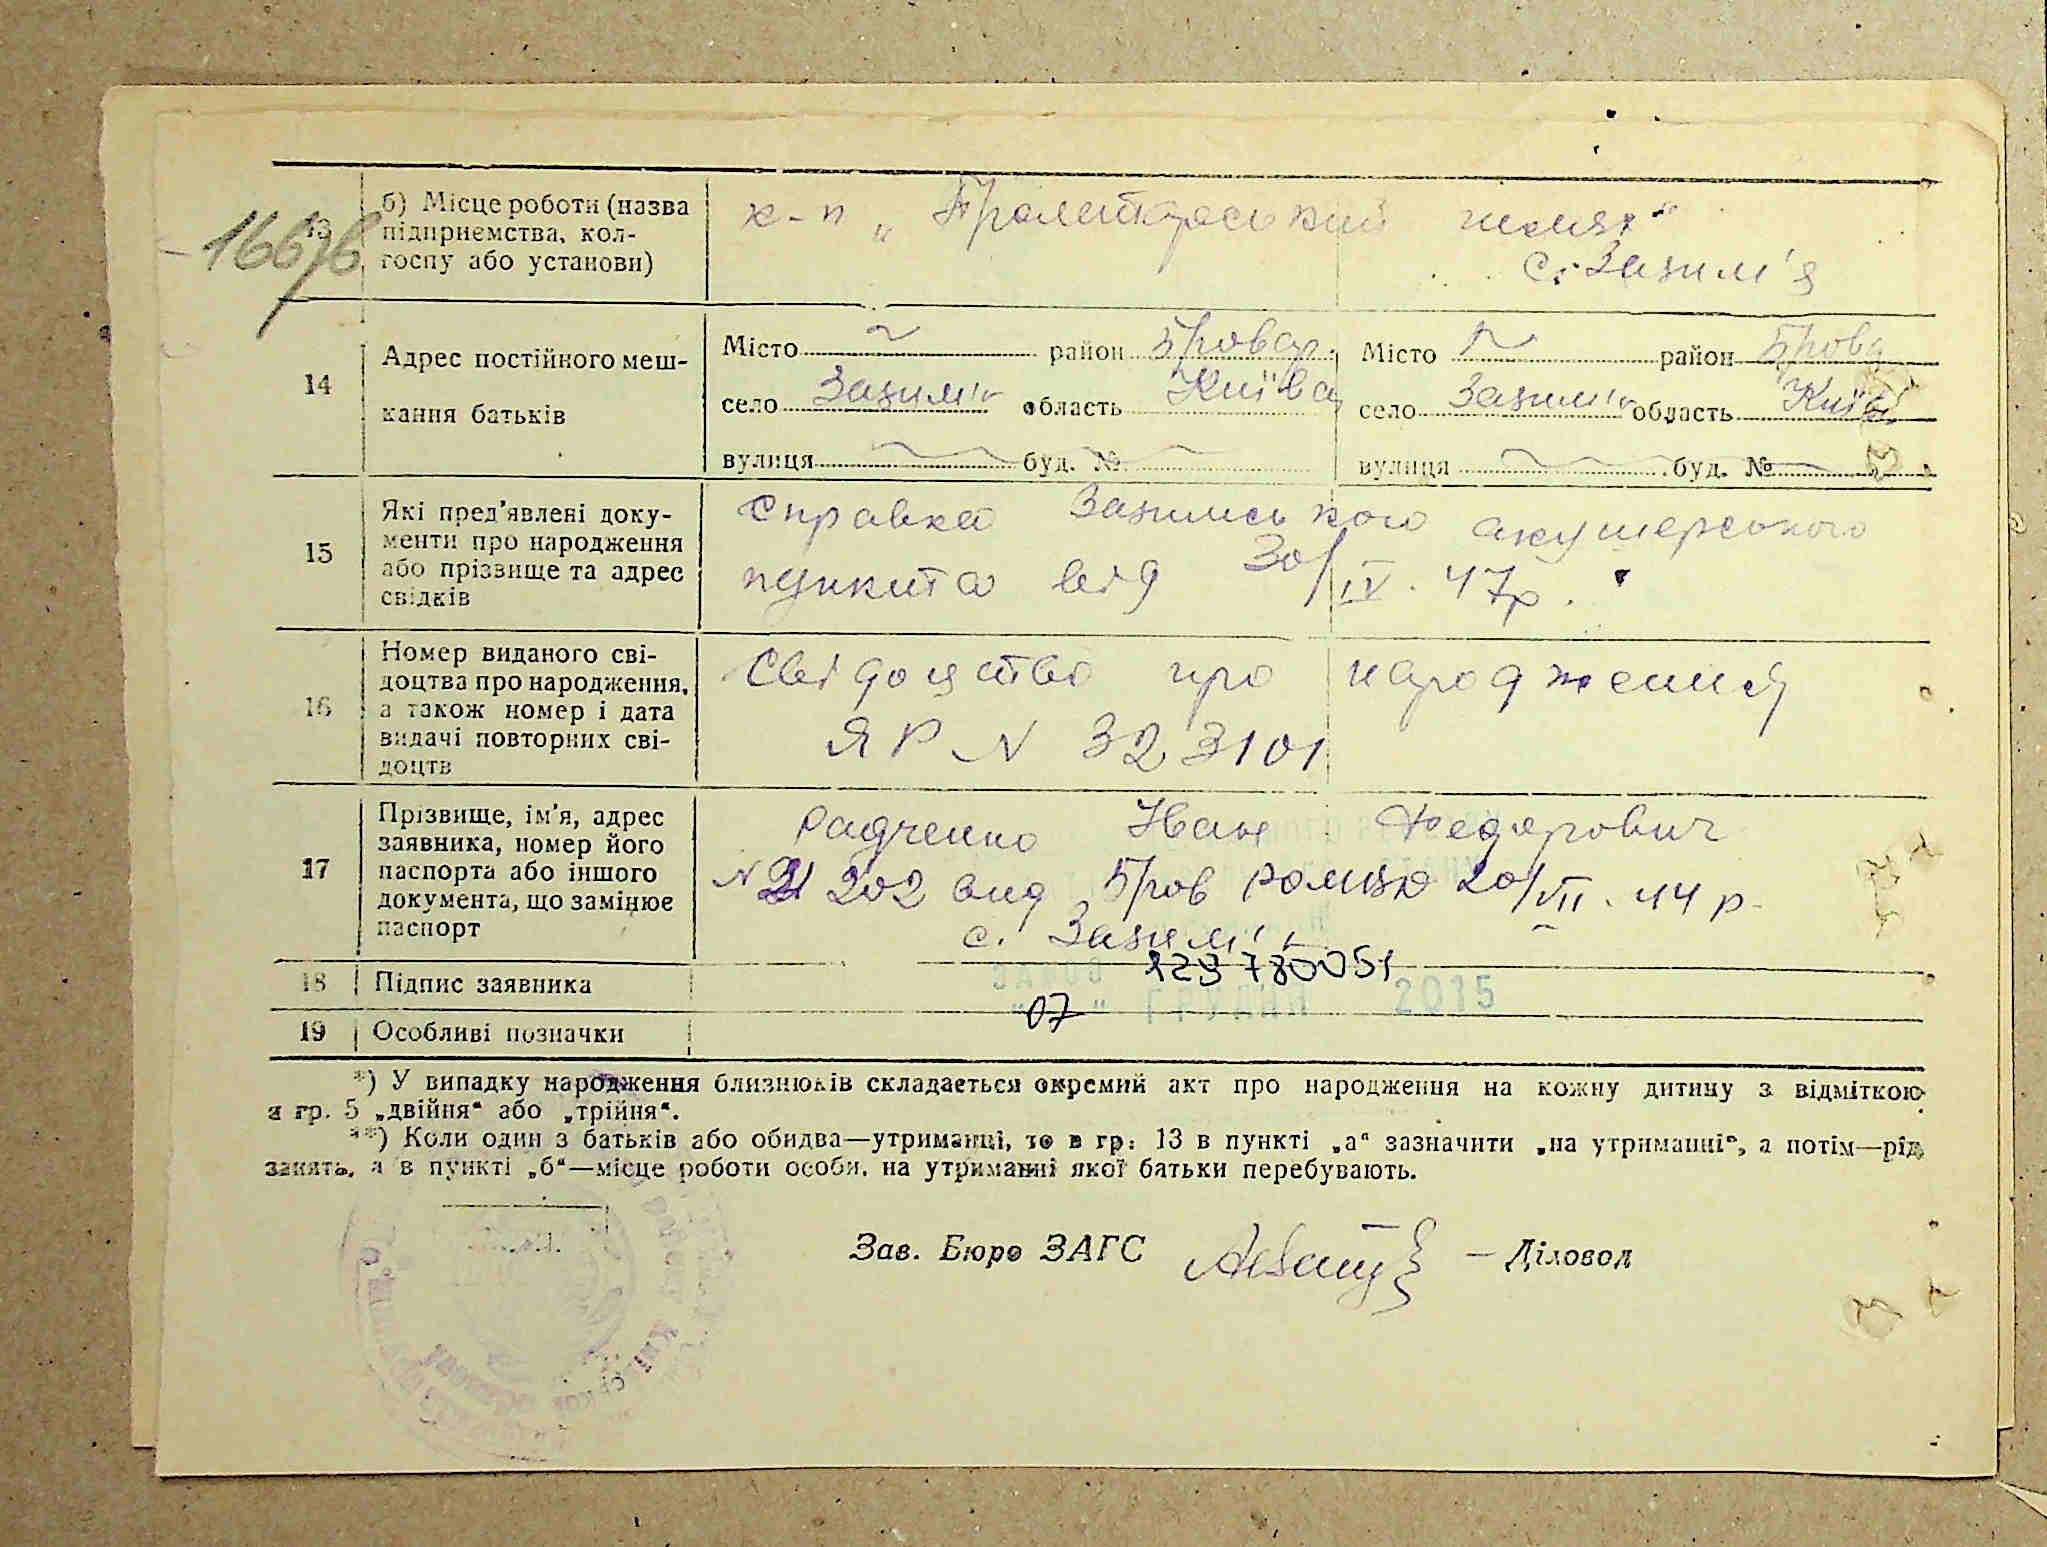 б) Місце роботи (назва
13 підприємства, кол-
госпу або установи)
к-п „Пролетарський шлях“
с. Зазим'я
16676
14 Адрес постійного меш-
кання батьків
Місто ~ район Бровар. Місто ~ район Брова
село Зазим'я область Київа село Зазим'я область Київ
вулиця буд. № вулиця буд. №
15 Які пред'явлені доку-
менти про народження
або прізвище та адрес
свідків
Справка Зазимського акушерського
пункта від 30/IV. 47р.
16 Номер виданого сві-
доцтва про народження,
а також номер і дата
видачі повторних сві-
доцтв
Свідоцтво про народження
ЯР N 323101
17 Прізвище, ім'я, адрес
заявника, номер його
паспорта або іншого
документа, що замінює
паспорт
Радченко Іван Федорович
N 202 вид Бров 20/VII. 44 р.
с. Зазим'я
129780051
18 Підпис заявника
„07“ ГРУДНЯ 2015
19 Особливі позначки
*) У випадку народження близнюків складається окремий акт про народження на кожну дитину з відміткою
в гр. 5 „двійня“ або „трійня“.
**) Коли один з батьків або обидва—утриманці, то в гр. 13 в пункті „а“ зазначити „на утриманні“, а потім—рід
занять, а в пункті „б“—місце роботи особи, на утриманні якої батьки перебувають.
Зав. Бюро ЗАГС — Діловод